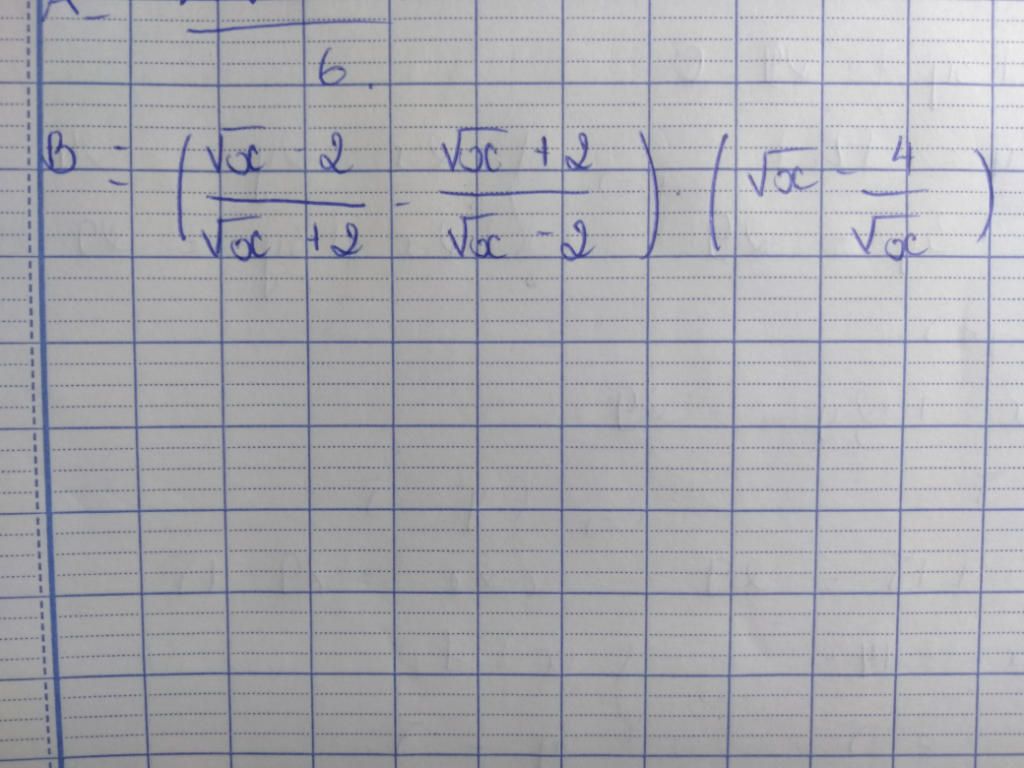 6.
B = ( (√x - 2)/(√x + 2) - (√x + 2)/(√x - 2) ) . ( √x - 4/√x )